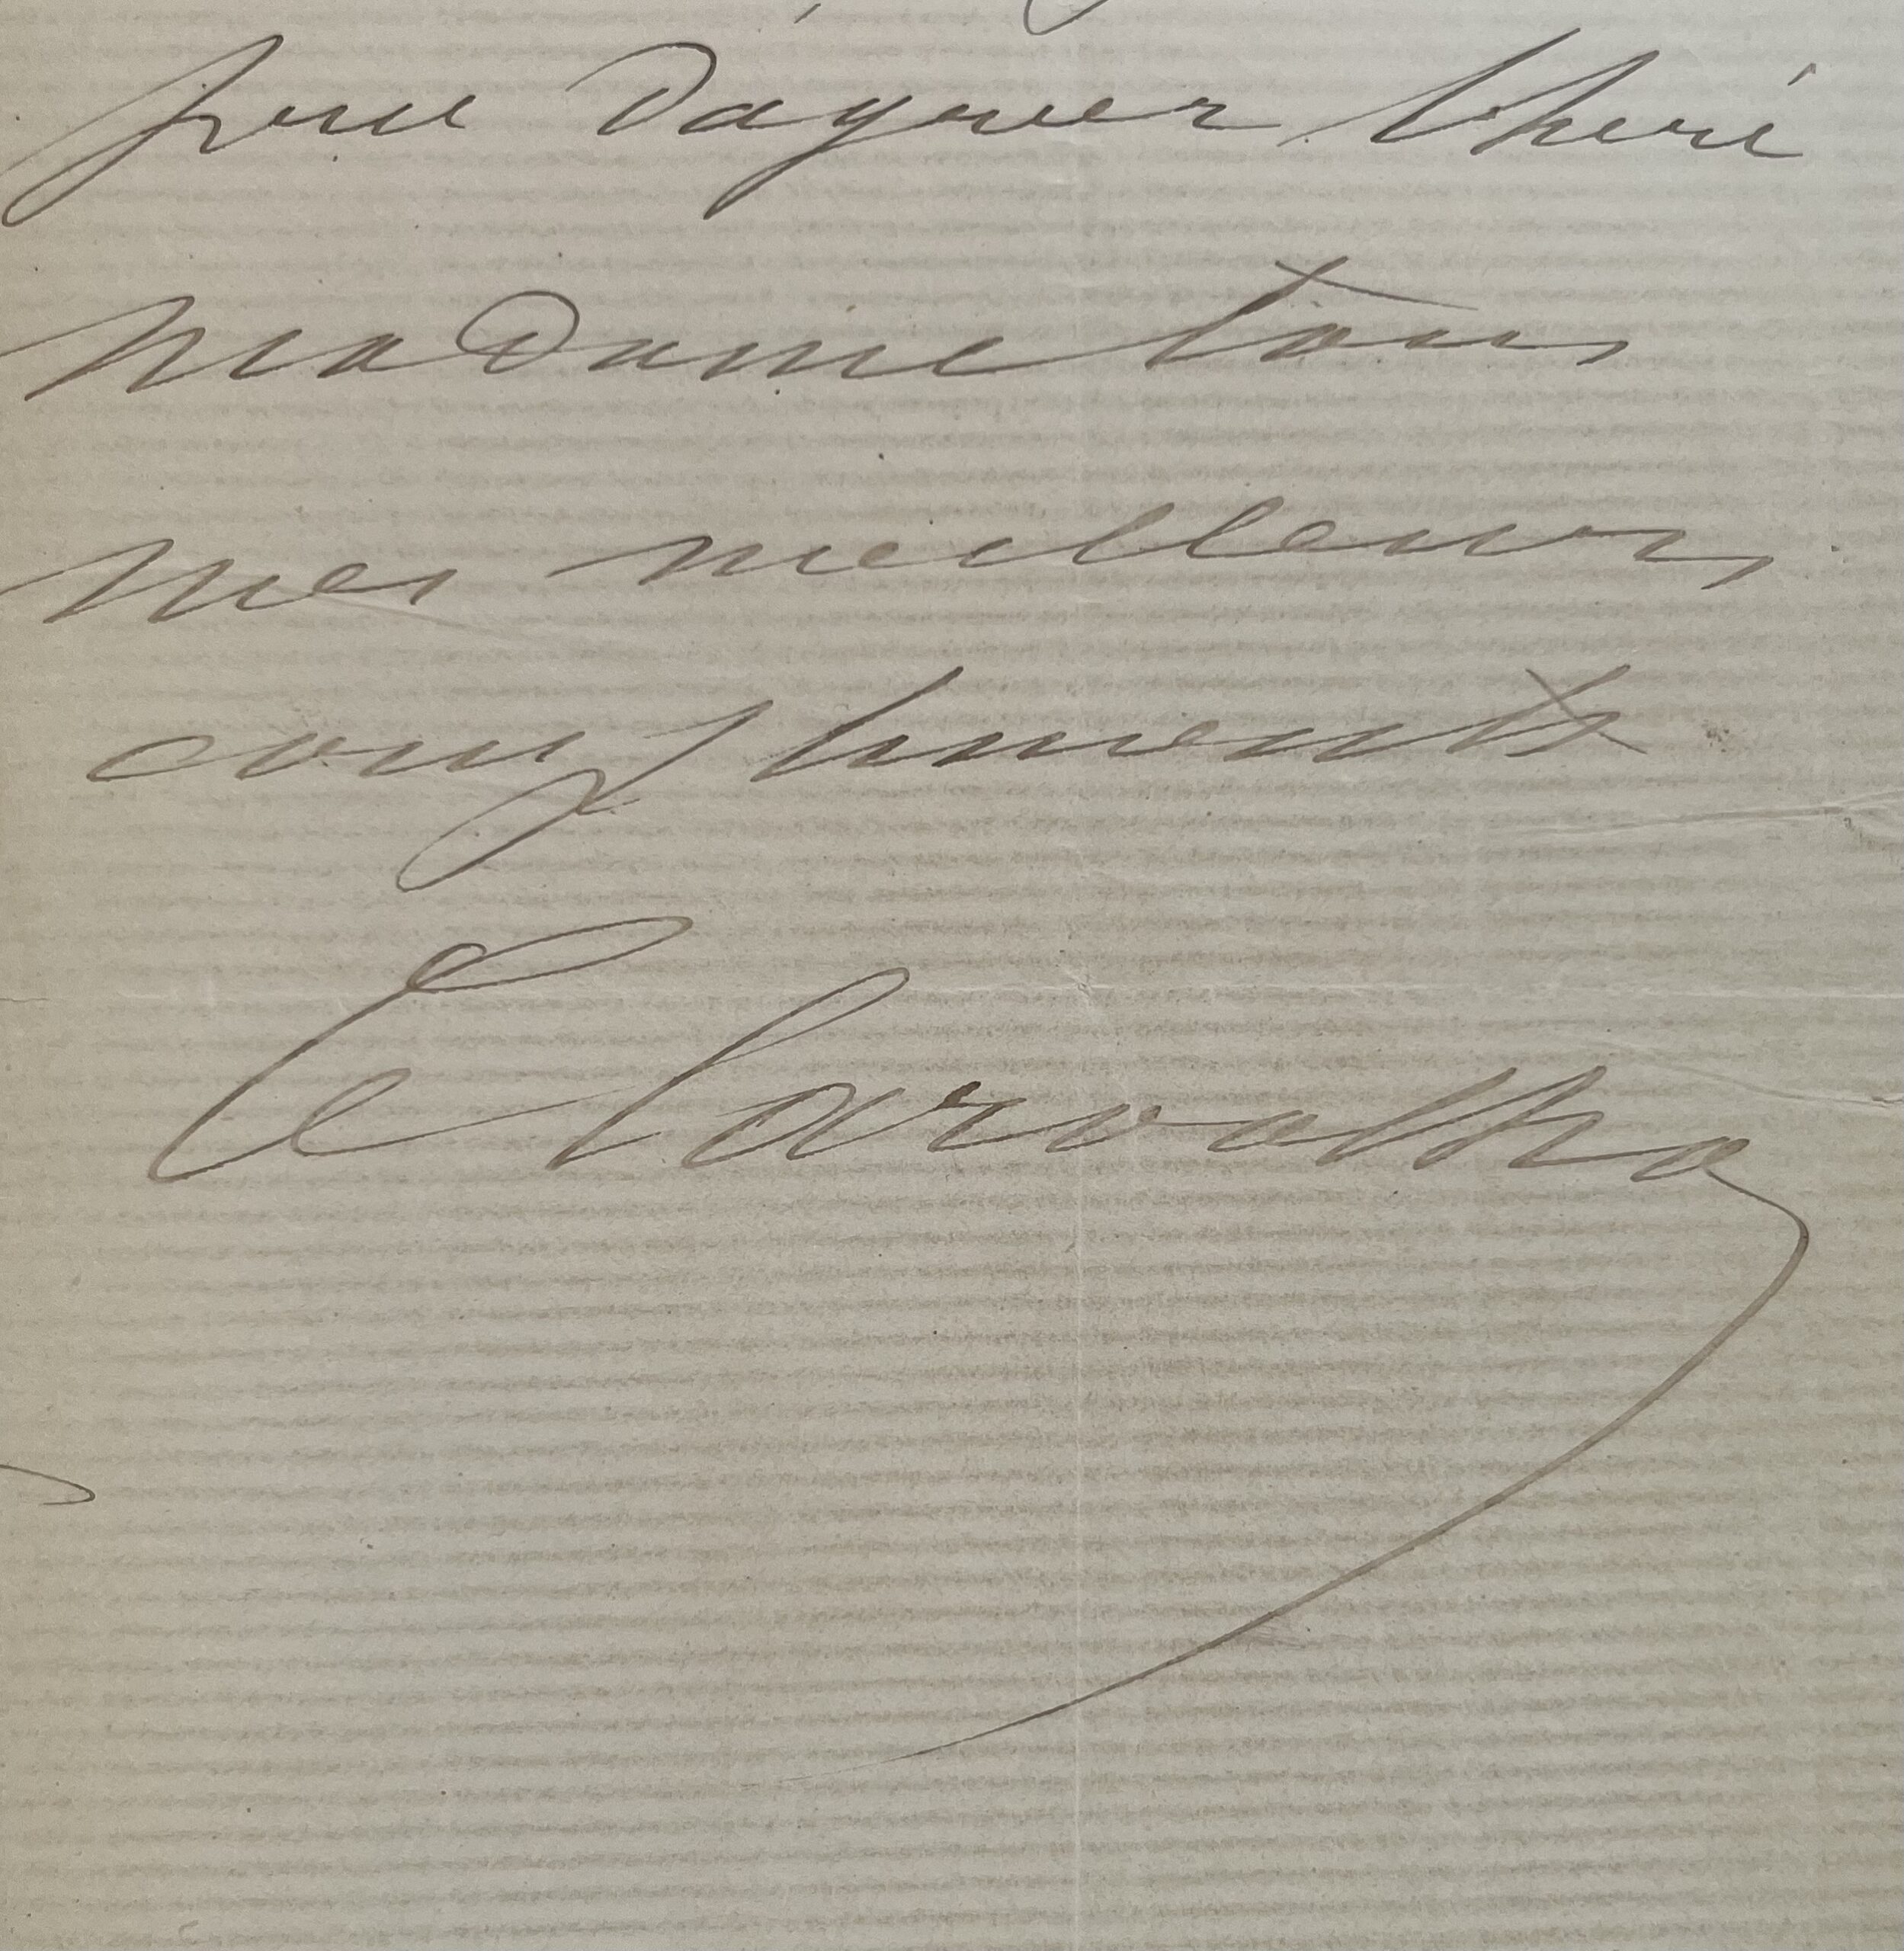 pour Dagner Cheré
Madame tous
mes meilleurs
compliments
C Carvalho